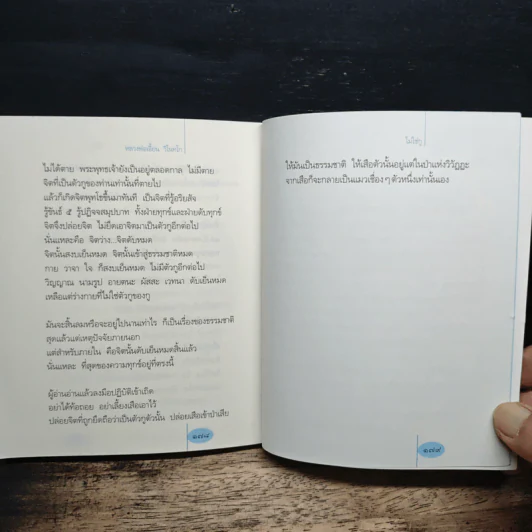 หลวงพ่อเยื้อน ขันติพโล
ไม่ได้ตาย พระพุทธเจ้ายังเป็นอยู่ตลอดกาล ไม่มีตาย
จิตที่เป็นตัวกูของท่านเท่านั้นที่ตายไป
แล้วก็เกิดจิตพุทโธขึ้นมาทันที เป็นจิตที่รู้อริยสัจ
รู้ขันธ์ ๕ รู้ปฏิจจสมุปบาท ทั้งฝ่ายทุกข์และฝ่ายดับทุกข์
จิตจึงปล่อยจิต ไม่ยึดเอาจิตมาเป็นตัวกูอีกต่อไป
นั่นแหละคือ จิตว่าง...จิตดับหมด
จิตนั้นสงบเย็นหมด จิตนั้นเข้าสู่ธรรมชาติหมด
กาย วาจา ใจ ก็สงบเย็นหมด ไม่มีตัวกูอีกต่อไป
วิญญาณ นามรูป อายตนะ ผัสสะ เวทนา ดับเย็นหมด
เหลือแต่ร่างกายที่ไม่ใช่ตัวกูของกู
มันจะสิ้นลมหรือจะอยู่ไปนานเท่าไร ก็เป็นเรื่องของธรรมชาติ
สุดแล้วแต่เหตุปัจจัยภายนอก
แต่สำหรับภายใน คือจิตนั้นดับเย็นหมดสิ้นแล้ว
นั่นแหละ ที่สุดของความทุกข์อยู่ที่ตรงนี้
ผู้อ่านอ่านแล้วลงมือปฏิบัติเข้าเถิด
อย่าได้ท้อถอย อย่าเลี้ยงเสือเอาไว้
ปล่อยจิตที่ถูกยึดถือว่าเป็นตัวกูตัวนั้น ปล่อยเสือเข้าป่าเสีย
๑๗๘
ไม่ใช่กู
ให้มันเป็นธรรมชาติ ให้เสือตัวนั้นอยู่แต่ในป่าแห่งวิวัฏฏะ
จากเสือก็จะกลายเป็นแมวเชื่อง ๆ ตัวหนึ่งเท่านั้นเอง
๑๗๙